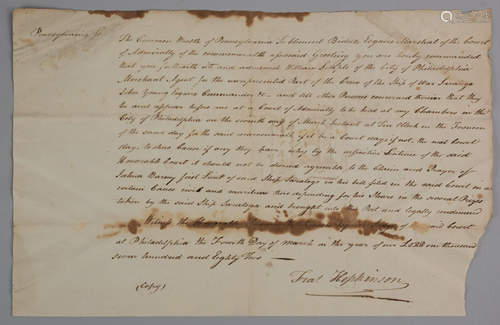 Pennsylvania ss
The Common Wealth of Pennsylvania To Clement Biddle Esquire Marshal of the Court
of Admiralty of the commonwealth aforesaid Greeting you are hereby commanded
that you forthwith cite and admonish William of the City of Philadelphia
Merchant Agent for the unrepresented Part of the Crew of the Ship of War Saratoga
John Young Esquire Commander &c. and all other Persons concerned therein that they
be and appear before me at a Court of Admiralty to be held at my Chambers in the
City of Philadelphia on the day of March Instant at Ten O'Clock in the Forenoon
of the same day for the said commonwealth if it be a Court day if not, the next Court
day, to shew Cause if any they have, why by the definitive Sentence of the said
Honorable Court it should not be decreed agreeable to the Claim and Prayer of
Joshua Barny first Lieut. of said Ship Saratoga in his bill filed in the said Court in a
certain Cause civil and maritime there depending for his Share in the several Prizes
taken by the said Ship Saratoga and brought into this Port and legally condemned
Witness the Honorable of the said Court
at Philadelphia the Fourth Day of March in the year of our LORD one thousand
seven hundred and Eighty Two —
Fras Hopkinson
(Copy)